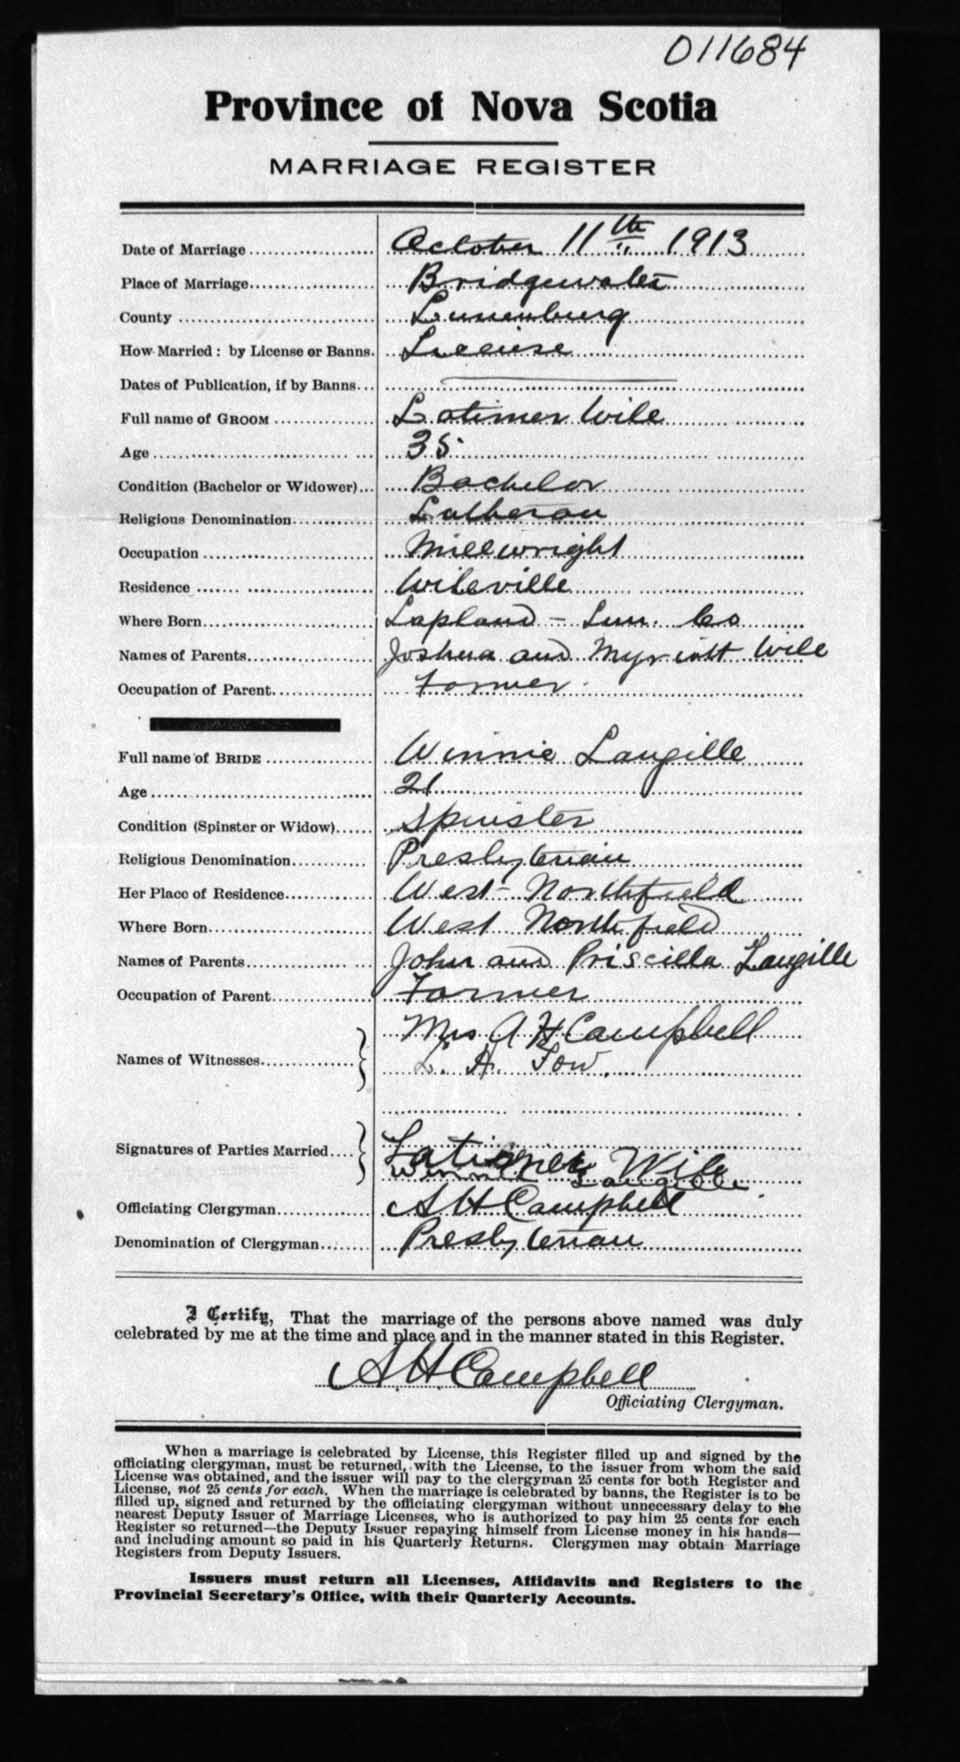 011684
Province of Nova Scotia
MARRIAGE REGISTER
Date of Marriage October 11th 1913
Place of Marriage Bridgewater
County Lunenburg
How Married: by License or Banns. License
Dates of Publication, if by Banns
Full name of GROOM Latimer Wile
Age 35
Condition (Bachelor or Widower) Bachelor
Religious Denomination Lutheran
Occupation Millwright
Residence Wileville
Where Born Lapland - Lun. Co
Names of Parents Joshua and Wile
Occupation of Parent Farmer
Full name of BRIDE Winnie Langille
Age 21
Condition (Spinster or Widow) Spinster
Religious Denomination Presbyterian
Her Place of Residence West Northfield
Where Born West Northfield
Names of Parents John and Priscilla Langille
Occupation of Parent Farmer
Mrs A H Campbell
Names of Witnesses L. A. Fow.
Signatures of Parties Married Latimer Wile
Winnie Langille
Officiating Clergyman A H Campbell
Denomination of Clergyman Presbyterian
I Certify, That the marriage of the persons above named was duly
celebrated by me at the time and place and in the manner stated in this Register.
A H Campbell
Officiating Clergyman.
When a marriage is celebrated by License, this Register filled up and signed by the
officiating clergyman, must be returned, with the License, to the issuer from whom the said
License was obtained, and the issuer will pay to the clergyman 25 cents for both Register and
License, not 25 cents for each. When the marriage is celebrated by banns, the Register is to be
filled up, signed and returned by the officiating clergyman without unnecessary delay to the
nearest Deputy Issuer of Marriage Licenses, who is authorized to pay him 25 cents for each
Register so returned—the Deputy Issuer repaying himself from License money in his hands—
and including amount so paid in his Quarterly Returns. Clergymen may obtain Marriage
Registers from Deputy Issuers.
Issuers must return all Licenses, Affidavits and Registers to the
Provincial Secretary's Office, with their Quarterly Accounts.